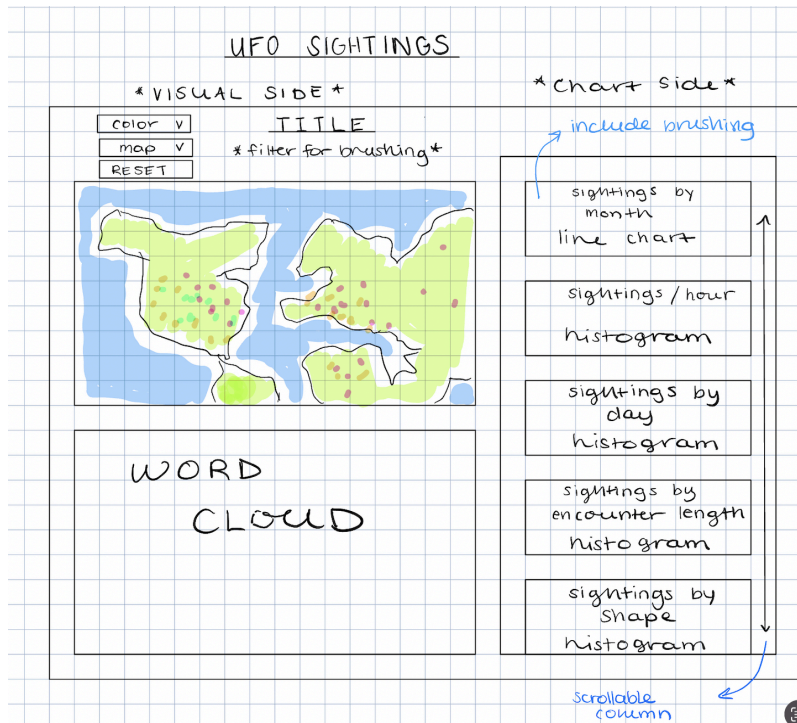 UFO SIGHTINGS
* VISUAL SIDE *
* Chart Side *
color v
map v
RESET
TITLE
* filter for brushing *
include brushing
sightings by
month
line chart
sightings / hour
histogram
sightings by
day
histogram
sightings by
encounter length
histogram
sightings by
shape
histogram
WORD
CLOUD
scrollable
column